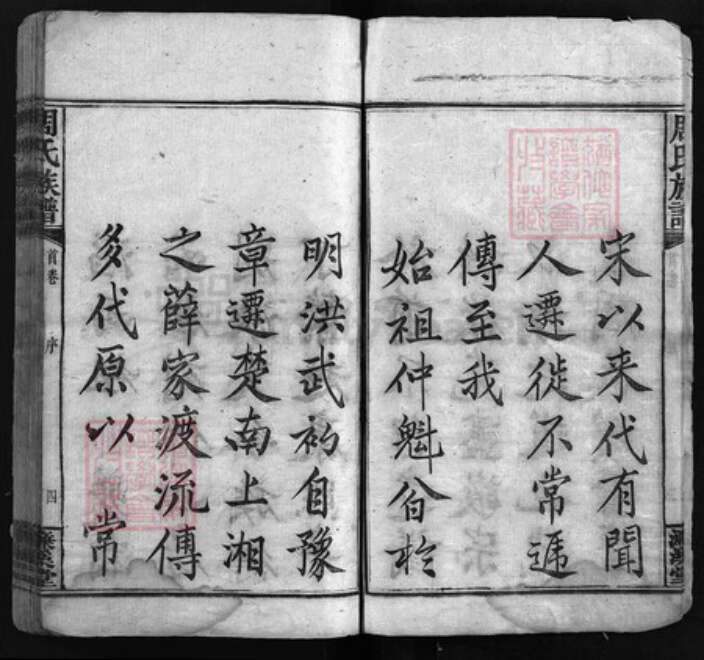 宋以来代有聞
人遷徙不常遞
傳至我
始祖仲魁翁於
明洪武初自豫
章遷楚南上湘
之薛家渡流傳
多代原以 常
周氏族譜
首卷
序
四
濂溪堂
周氏族譜